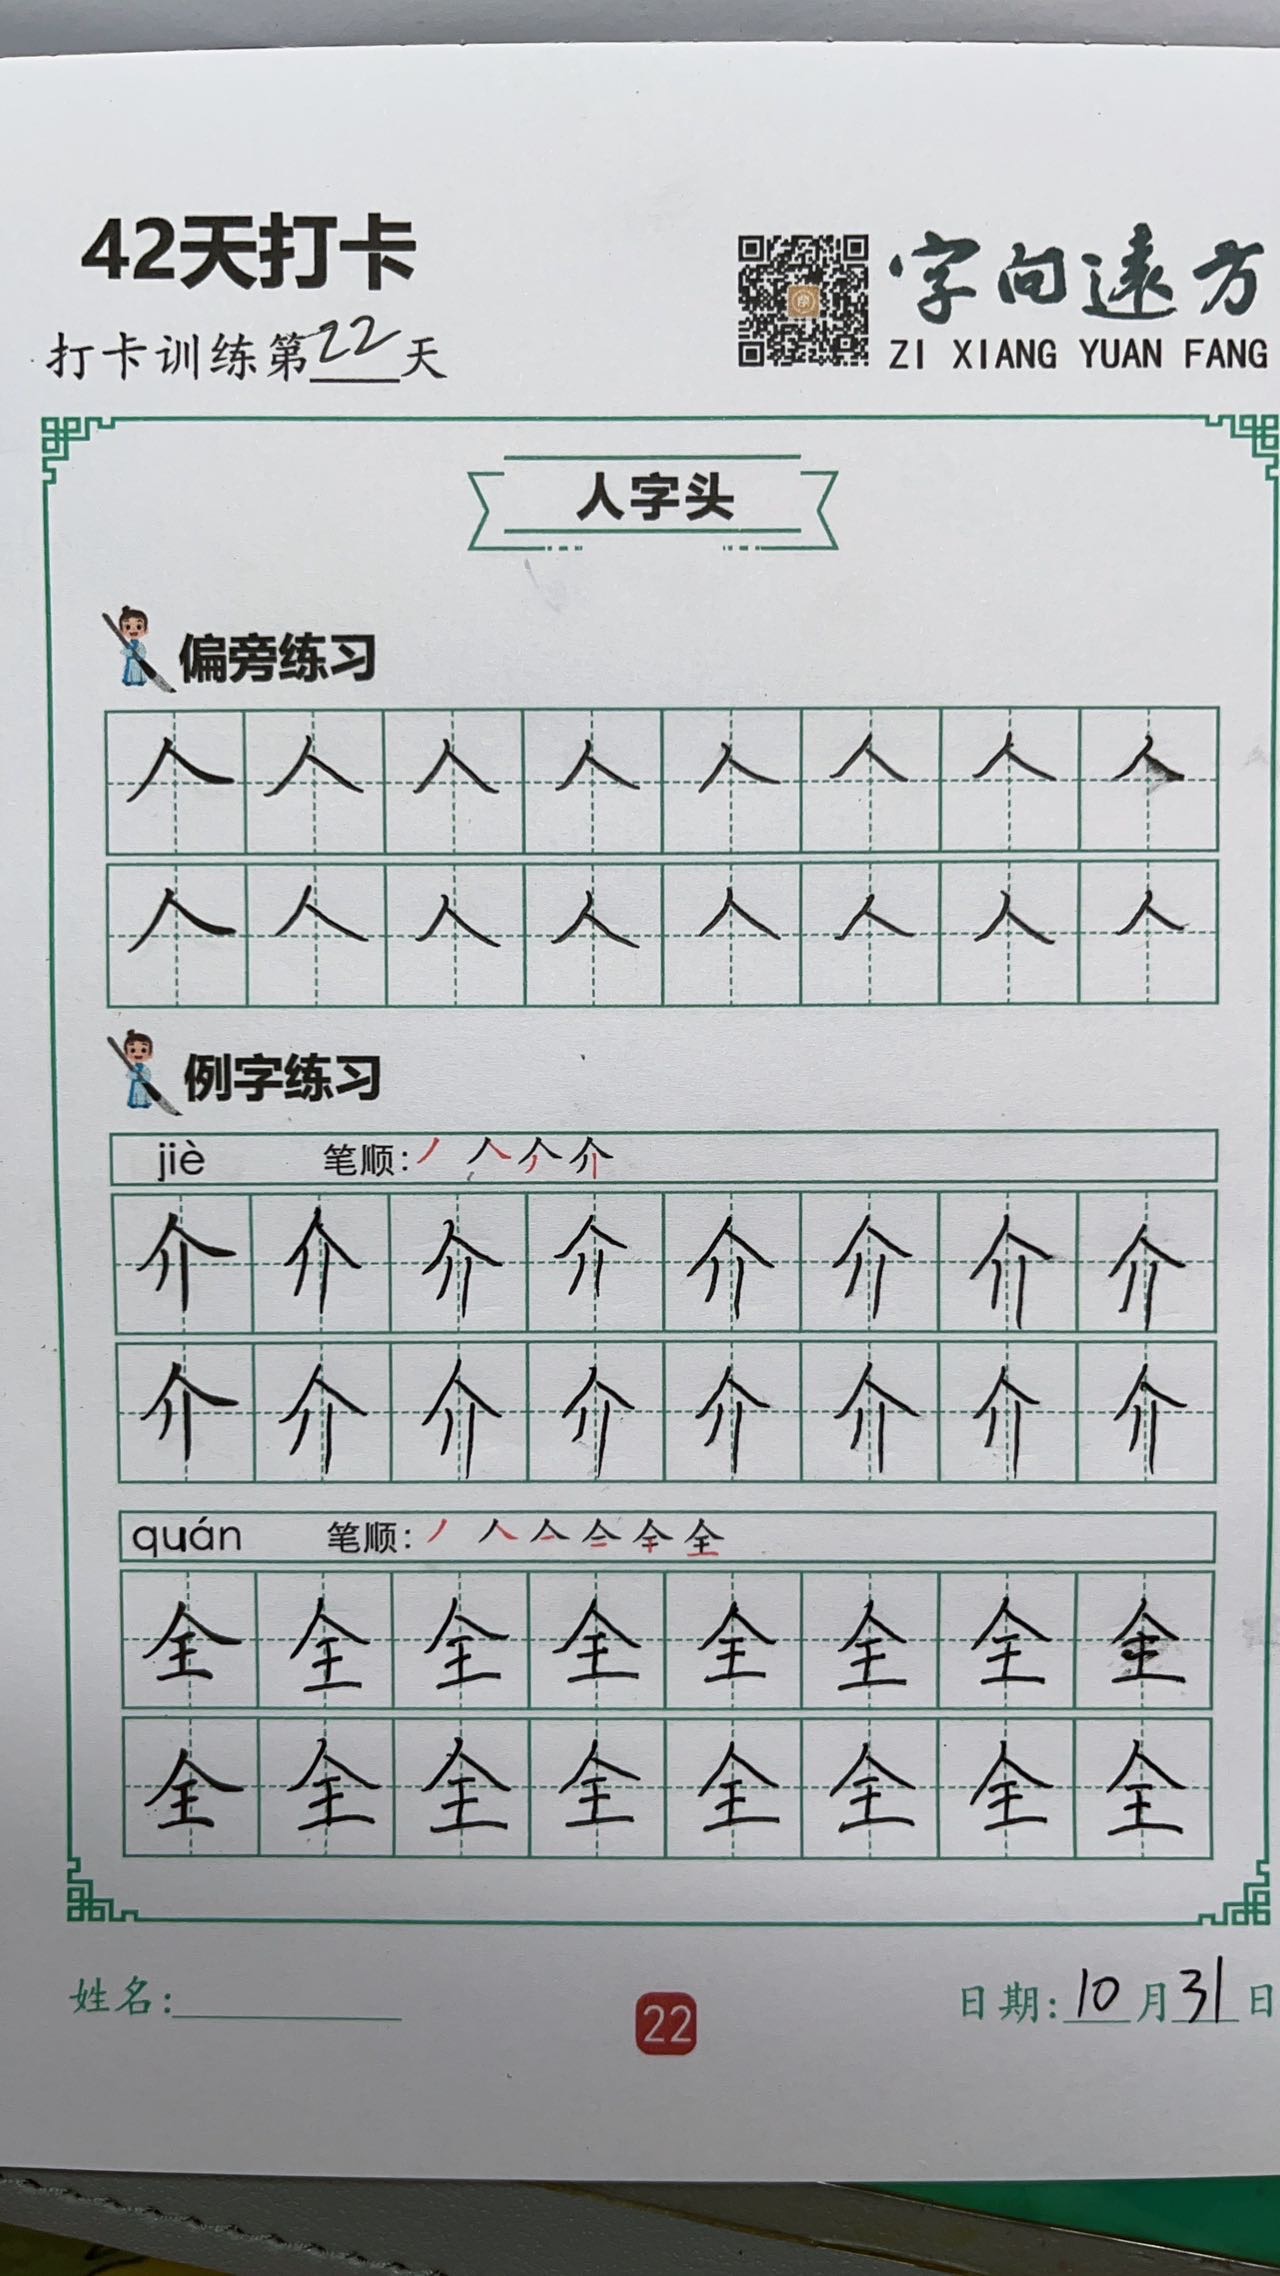 42天打卡
字向遠方
打卡训练第22天
ZI XIANG YUAN FANG
人字头
偏旁练习
人 人 人 人 人 人 人 人
人 人 人 人 人 人 人 人
例字练习
jiè 笔顺:丿 人 介 介
介 介 介 介 介 介 介 介
介 介 介 介 介 介 介 介
quán 笔顺:丿 人 亼 仝 全 全
全 全 全 全 全 全 全 全
全 全 全 全 全 全 全 全
姓名:
22
日期:10月31日